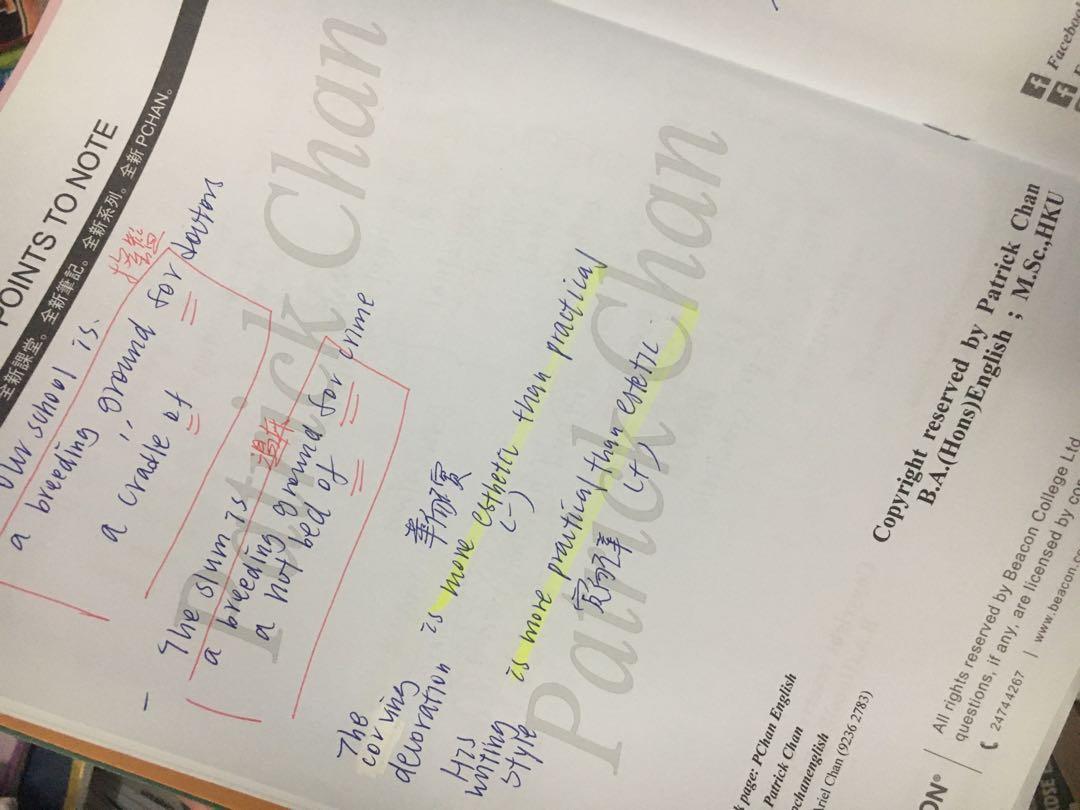 POINTS TO NOTE
全新課堂。全新筆記。全新系列。全新 PCHAN。
our school is
a breeding ground for doctors
搖籃
a cradle of
- The slum is
a breeding ground for crime
溫床
a hot bed of
The
corving
decoration is more esthetic than practical
華而不實
(-)
His
writing
style
is more practical than estetic
實而不華
(+)
Patrick Chan
Patrick Chan
Facebook
page: PChan English
Patrick Chan
pchanenglish
riel Chan (9236 2783)
Copyright reserved by Patrick Chan
B.A.(Hons)English ; M.Sc.,HKU
ON®
All rights reserved by Beacon College Ltd
questions, if any, are licensed by
2474 4267 | www.beacon.co